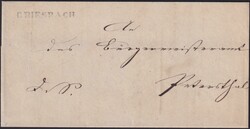 GRIESBACH
An
das Bürgermeisteramt
D. S. Petersthal